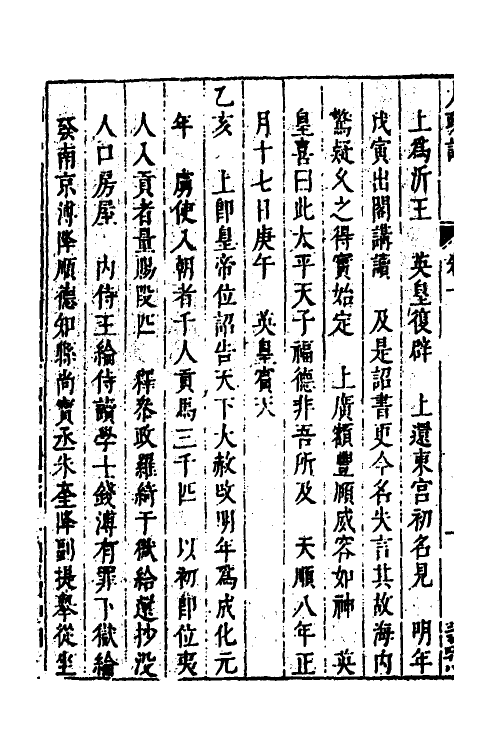 上爲沂王　英皇復辟　上還東宮初名見　明年
戊寅出閣講讀　及是詔書更今名失言其故海内
驚疑久之得實始定　上廣額豐頤威容如神　英
皇喜曰此太平天子福德非吾所及　天順八年正
月十七日庚午　英皇賓天
乙亥　上卽皇帝位詔告天下大赦改明年爲成化元
年　虜使入朝者千人貢馬三千匹　以初卽位夷
人入貢者量賜段匹　釋叅政羅綺于獄給還抄没
人口房屋　内侍王綸侍讀學士錢溥有罪下獄綸
發南京溥降順德知縣尚寳丞朱奎降副提舉從坐